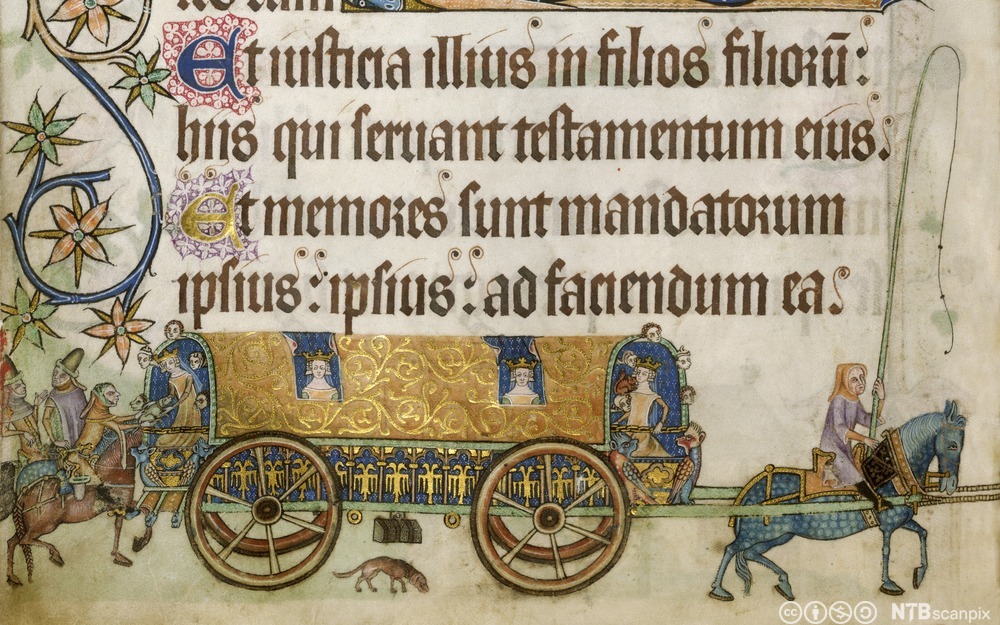 Et iusticia illius in filios filiorū:
hiis qui seruant testamentum eius.
Et memores sunt mandatorum
ipsius: ipsius: ad faciendum ea.
NTB scanpix